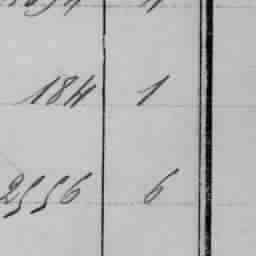 184 1
2556 6